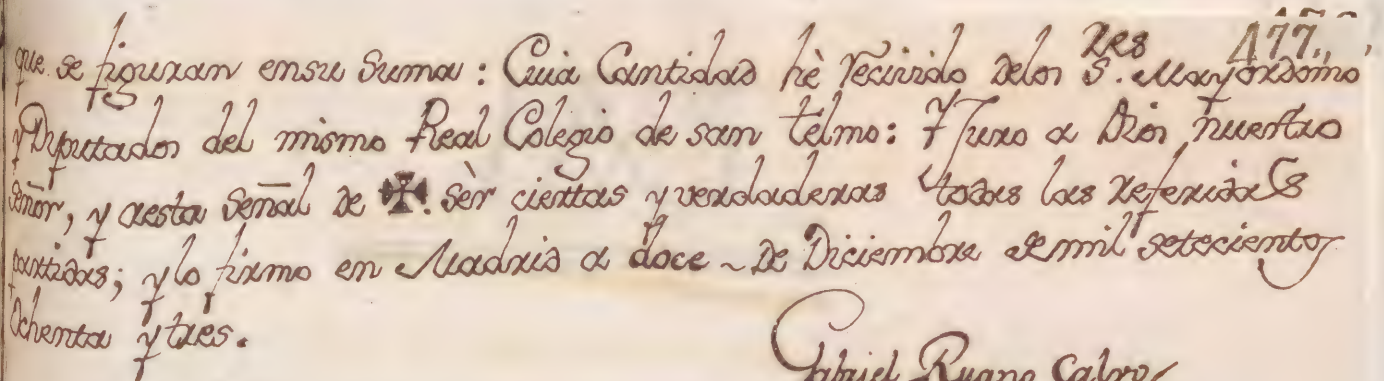 477,,
que se figuran ensu Suma : Cuia Cantidad hè recivido delos S.res Mayordomo
y Diputados del mismo Real Colegio de san Telmo: Y Juro a Dios nuestro
Señor, y aesta Señal de ✠. sèr ciertas y verdaderas todas las referidas
partidas; y lo firmo en Madrid a doce ~ de Diciembre de mil setecientos
Ochenta y tres.
Gabriel Ruano Calvo